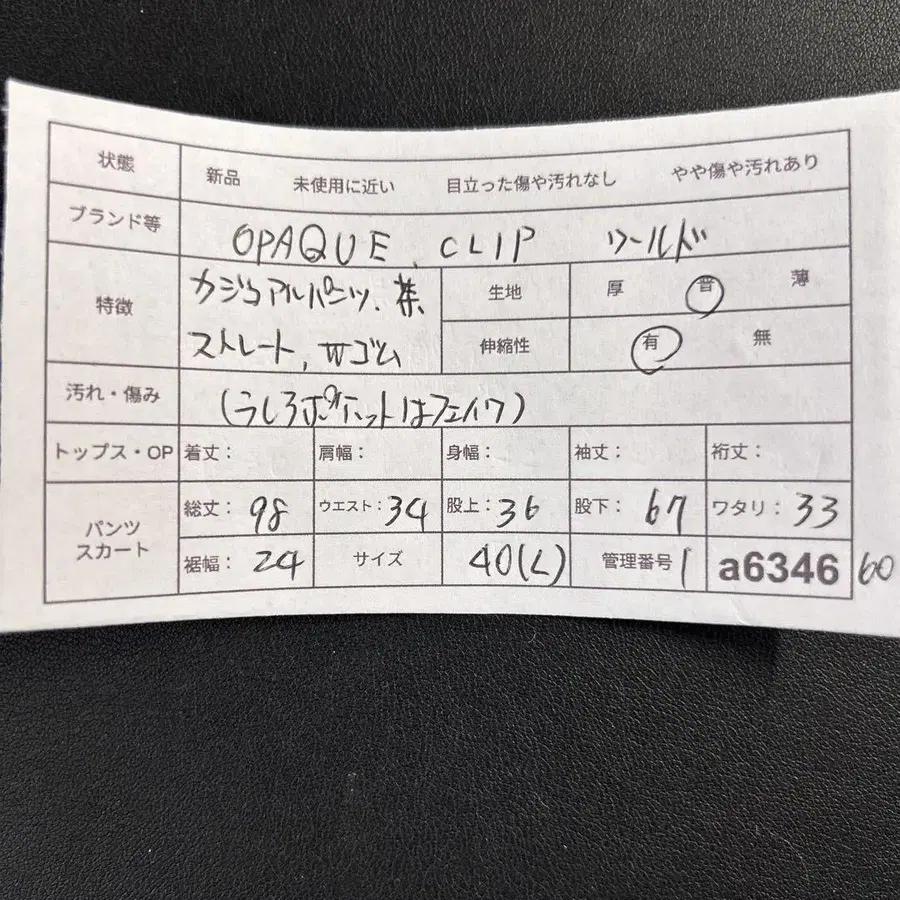 状態 新品 未使用に近い 目立った傷や汚れなし やや傷や汚れあり
ブランド等 OPAQUE.CLIP ワールド
特徴 カジュアルパンツ、茶、 生地 厚 普 薄
ストレート, Wゴム 伸縮性 有 無
汚れ・傷み (うしろポケットはフェイク)
トップス・OP 着丈: 肩幅: 身幅: 袖丈: 裄丈:
パンツ スカート 総丈: 98 ウエスト: 34 股上: 36 股下: 67 ワタリ: 33
裾幅: 24 サイズ 40(L) 管理番号 1 a6346 60